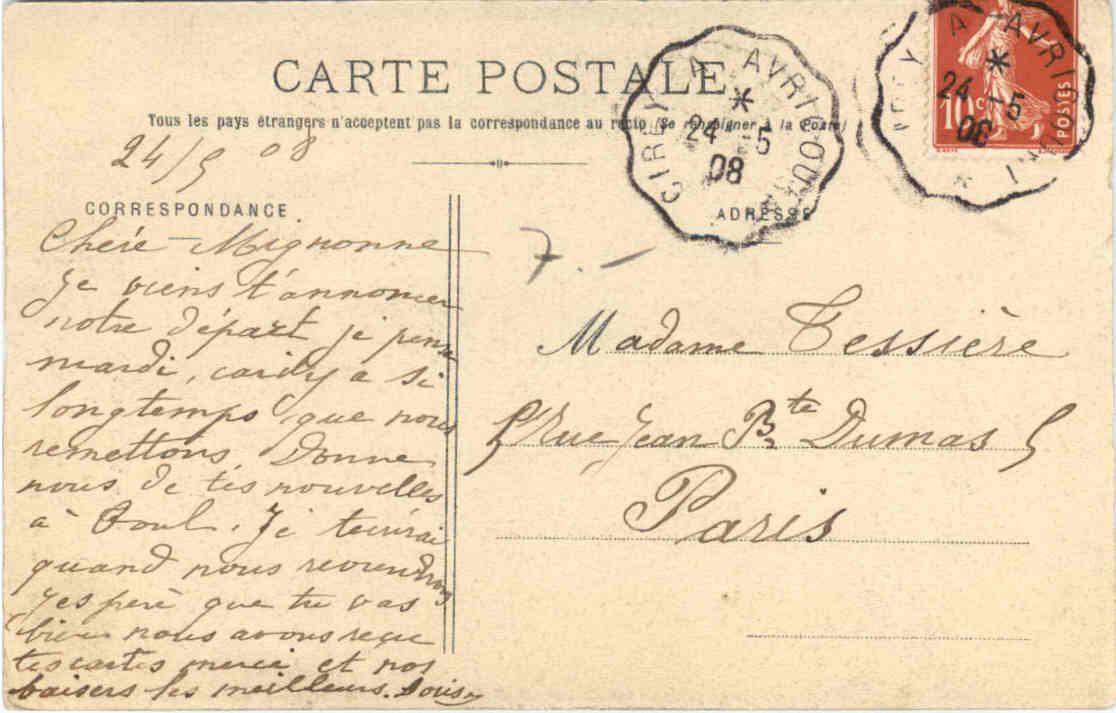 CARTE POSTALE
Tous les pays étrangers n'acceptent pas la correspondance au recto (Se renseigner à la Poste)
24/5 08
CIREY A AVRICOURT
24 -5
08
A AVRI
24 -5
08
10c
POSTES
CORRESPONDANCE
ADRESSE
7.-
Chère Mignonne
Je viens t'annoncer
notre départ je pense
mardi, car il y a si
longtemps que nous
remettons Donne
nous de tes nouvelles
à Toul. Je t'écrirai
quand nous reviendrons
J'espère que tu vas
bien nous avons reçu
tes cartes merci et nos
baisers les meilleurs.
Madame Tessière
5 Rue Jean Bte Dumas 5
Paris